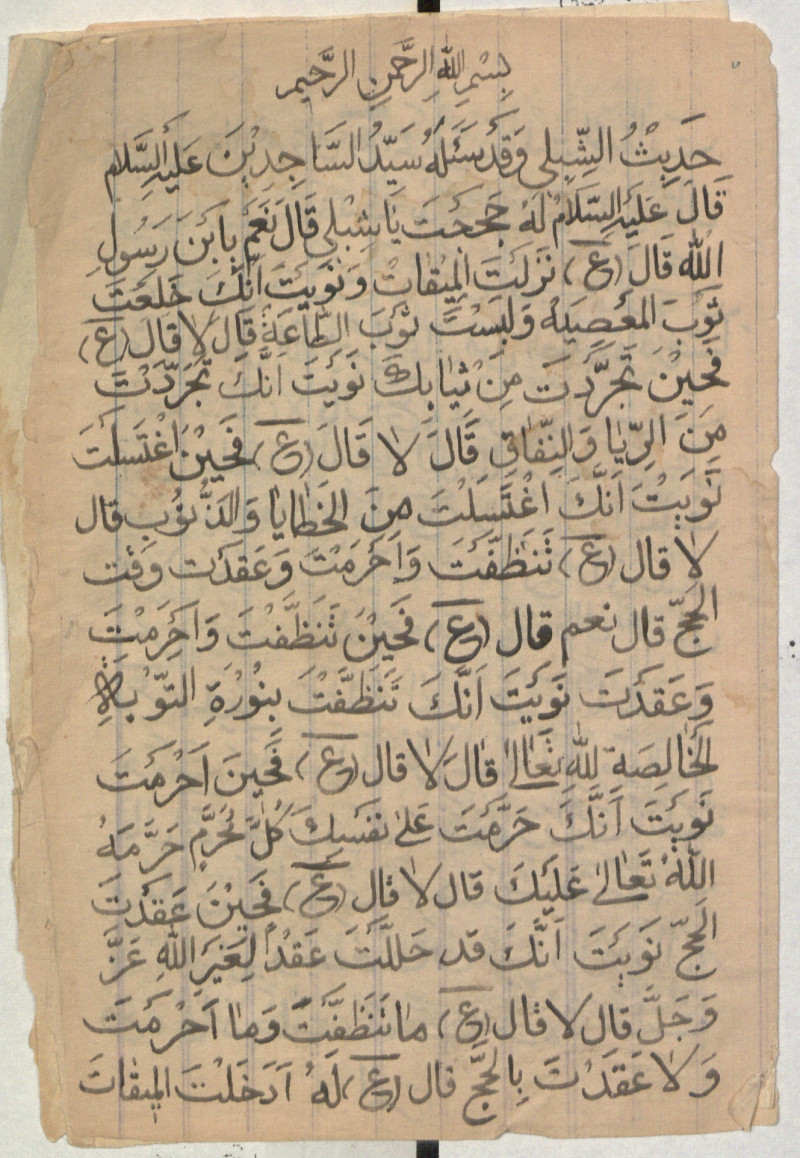 بِسْمِ اللهِ الرَّحْمنِ الرَّحيم
حَديْثُ الشِّبلي وَقَدْ سَئَلَهُ سَيِّدُ السَّاجِدِيْنَ عَلَيْهِ السَّلام
قَالَ عَلَيْهِ السَّلامُ لَهُ حَجَجْتَ يَا شِبْلي قَالَ نَعَمْ يا بْنَ رَسُولِ
اللهِ قَالَ (ع) نَزَلْتَ الْمِيْقاتْ وَنَوَيْتَ اَنَّكَ خَلَعْتَ
ثَوْبَ المَعْصِيَةِ وَلَبِسْتَ ثَوْبَ الطَّاعَةِ قَالَ لا قَالَ (ع)
فَحِيْنَ تَجَرَّدْتَ مِنْ ثِيابِكَ نَوَيْتَ اَنَّكَ تَجَرَّدْتَ
مِنَ الرِّيا وَالنِّفَاقِ قَالَ لا قَالَ (ع) فَحِيْنَ اغْتَسَلْتَ
نَوَيْتَ اَنَّكَ اغْتَسَلْتَ مِنَ الخَطايا وَالذُّنُوبِ قال
لا قال (ع) تَنَظَّفْتَ وَاَحْرَمْتَ وَعَقَدْتَ وَقْت
الحَجّ قال نعم قال (ع) فَحِيْنَ تَنَظَّفْتَ وَاَحْرَمْتَ
وَعَقَدْتَ نَوَيْتَ اَنَّكَ تَنَظَّفْتَ بِنُوْرَةِ التّوْبَةِ
الخَالِصَةِ لِلّهِ تَعَالىٰ قالَ لا قال (ع) فَحينَ اَحْرَمْتَ
نَوَيْتَ اَنَّكَ حَرَّمْتَ عَلىٰ نَفْسِكَ كُلَّ مُحَرَّمٍ حَرَّمَهُ
اللهُ تَعَالىٰ عَلَيْكَ قال لا قال (ع) فَحِيْنَ عَقَدْتَ
الحَجّ نَوَيْتَ اَنَّكَ قد حَلَلْتَ عَقْدًا لِغَيْرِ اللهِ عَزَّ
وَجَلَّ قال لا قال (ع) ما تَنَظَّفْتَ وَما اَحْرَمْتَ
وَلا عَقَدْتَ بِالحَجَّ قال (ع) لَهُ اَدَخَلْتَ المِيقاتَ